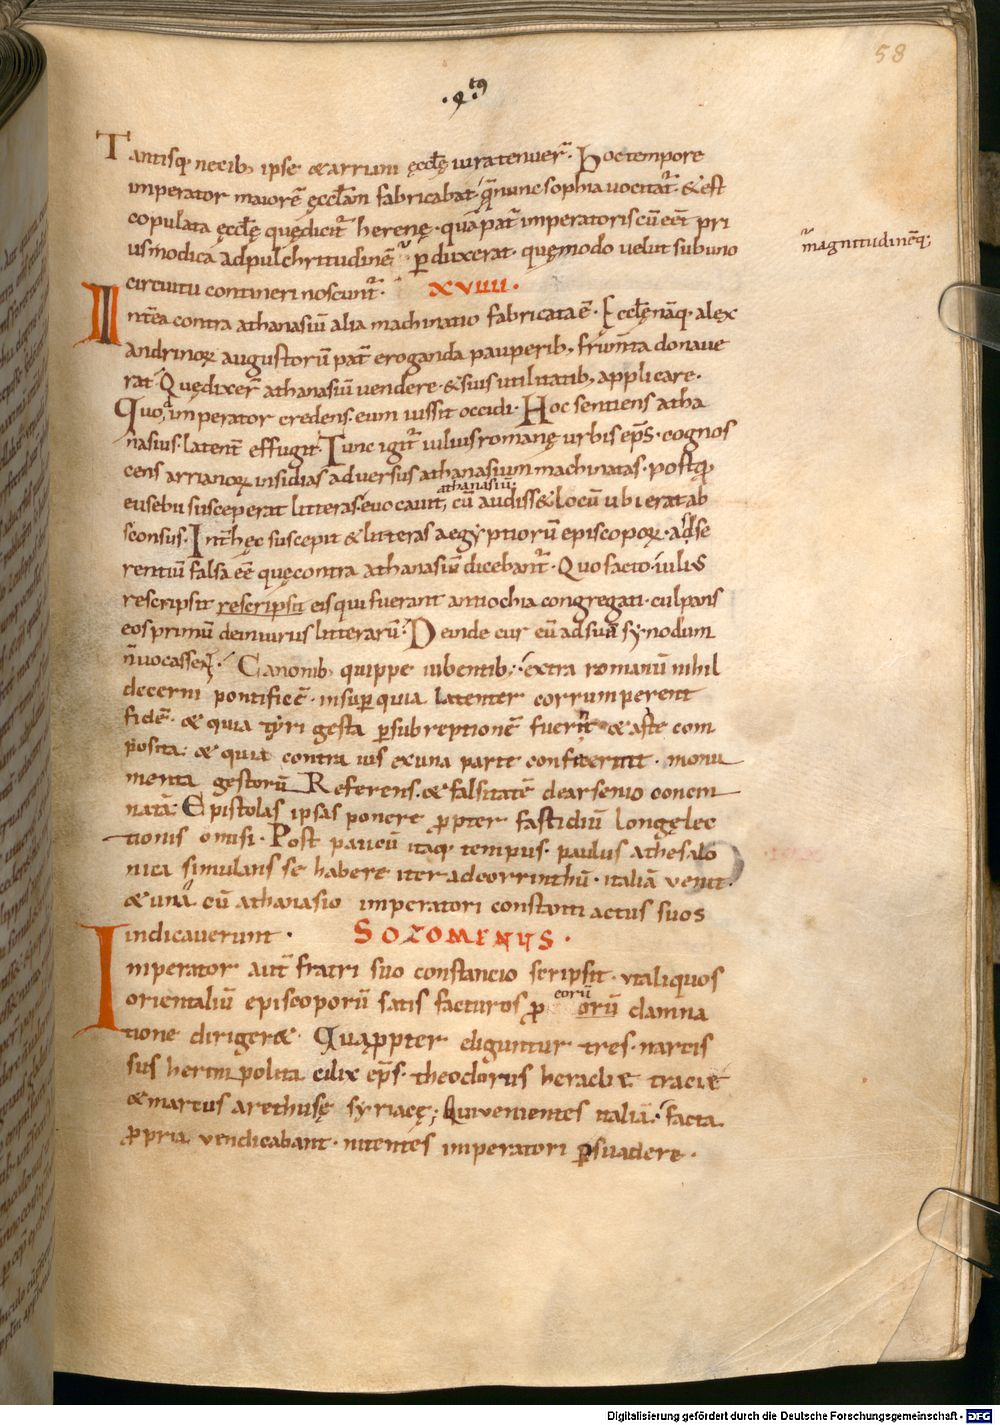 58
.qtꝰ.
Tantisq; necib; ipse & arrium ęccłę iura tenuer̄. Hoc tempore
imperator maiorē ęccłam fabricabat. q̄ nunc sophia uocitat᷑. & est
copulata ęccłę quę dicit᷑ herenę. quā pat᷑ imperatoris cū eēt pri
us modica ad pulchritudinē perduxerat. quę modo uelut sub uno
magnitudinēq;
circuitu contineri noscunt᷑. XVIIII.
Int̄ea contra athanasiū alia machinatio fabricata ē. Eccłę nāq; alex
andrinoꝝ augustorū pat᷑ eroganda pauperib; frum̄ta donaue
rat. Quę dixer̄ athanasiū uendere. & suis utilitatib; applicare.
Quo imperator credens. eum iussit occidi. Hoc sentiens atha
nasius. latent̄ effugit. Tunc igit᷑ iulius romanę urbis ep̄s. cognos
cens arrianoꝝ insidias aduersus athanasium machinatas. postq̄
athanasiū
eusebii susceperat litteras. euocauit, cū audiss& locū ubi erat ab
sconsus. Int̄ hęc suscepit & litteras aegyptiorū episcopoꝝ. adse
rentiū falsa eē quę contra athanasiū dicebant᷑. Quo facto. iulius
rescripsit rescripsit eis qui fuerant antiochia congregati. culpans
eos primū de iniuriis litterarū. Deinde cur eū ad suā synodum
n̄ uocassent. Canonib; quippe iubentib; extra romanū nihil
decerni pontificē. insuꝑ quia latenter corrumperent
fidē. & quia tyri gesta ꝑ subreptionē fuerint & aste com
posita. & quia contra ius ex una parte confecerunt. monu
menta gestorū Referens. & falsitatē de arsenio concin
natā. Epistolas ipsas ponere ꝓpter fastidiū longę lec
tionis omisi. Post paucū itaq; tempus. paulus a thesalo
nica simulans se habere iter ad corrinthū. italiā uenit.
& una cū athanasio imperatori constanti actus suos
indicauerunt. SOZOMENUS.
Imperator aut̄ fratri suo constancio scripsit. ut aliquos
eorū
orientaliū episcoporū satis facturos ꝓ orū damna
tione dirigere&. Quaꝓpter eliguntur tres. narcis
sus hermipolita cilix ep̄s. theodorus heraclie tracie
& marcus arethusę syriacę; Qui uenientes italiā. facta
ꝓpria uendicabant. nitentes imperatori ꝑsuadere.
Digitalisierung gefördert durch die Deutsche Forschungsgemeinschaft - DFG